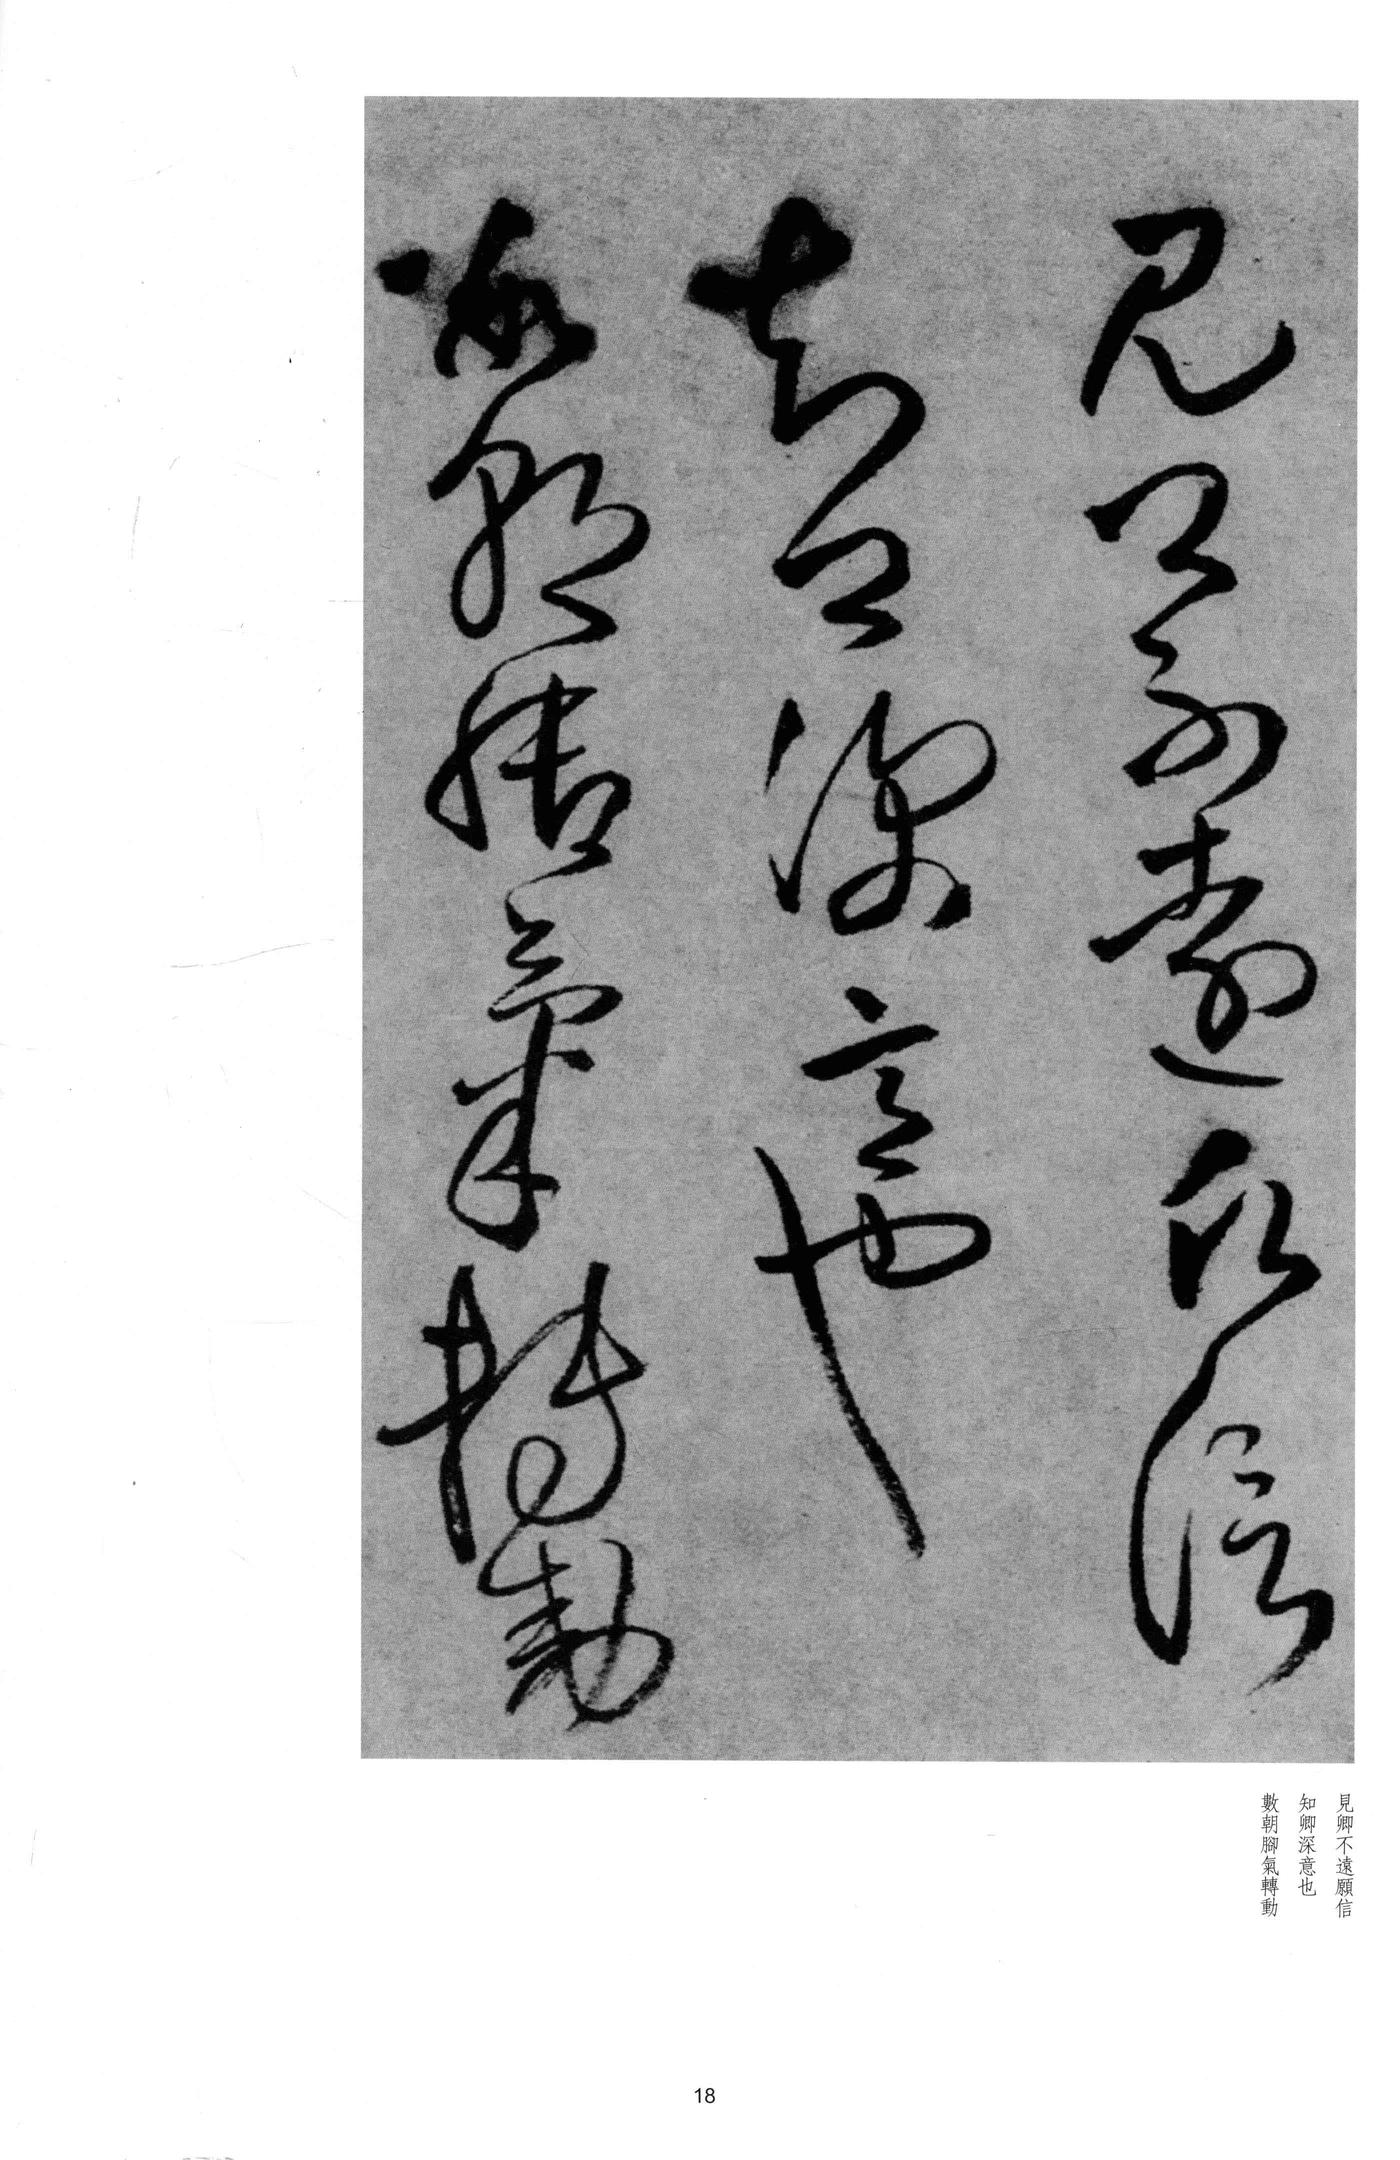 見卿不遠願信
知卿深意也
數朝腳氣轉動
見卿不遠願信
知卿深意也
數朝腳氣轉動
18